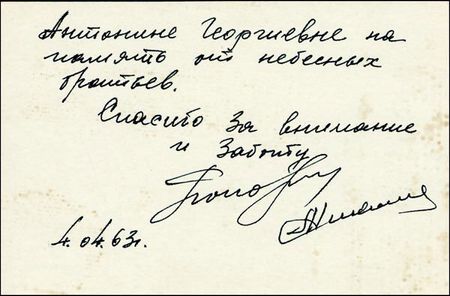 Антонине Георгиевне на
память от небесных
братьев.
Спасибо за внимание
и заботу
4.04.63г.